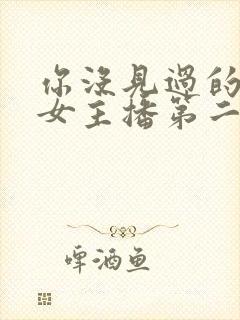 你没見過的
女主播第二
啤酒鱼